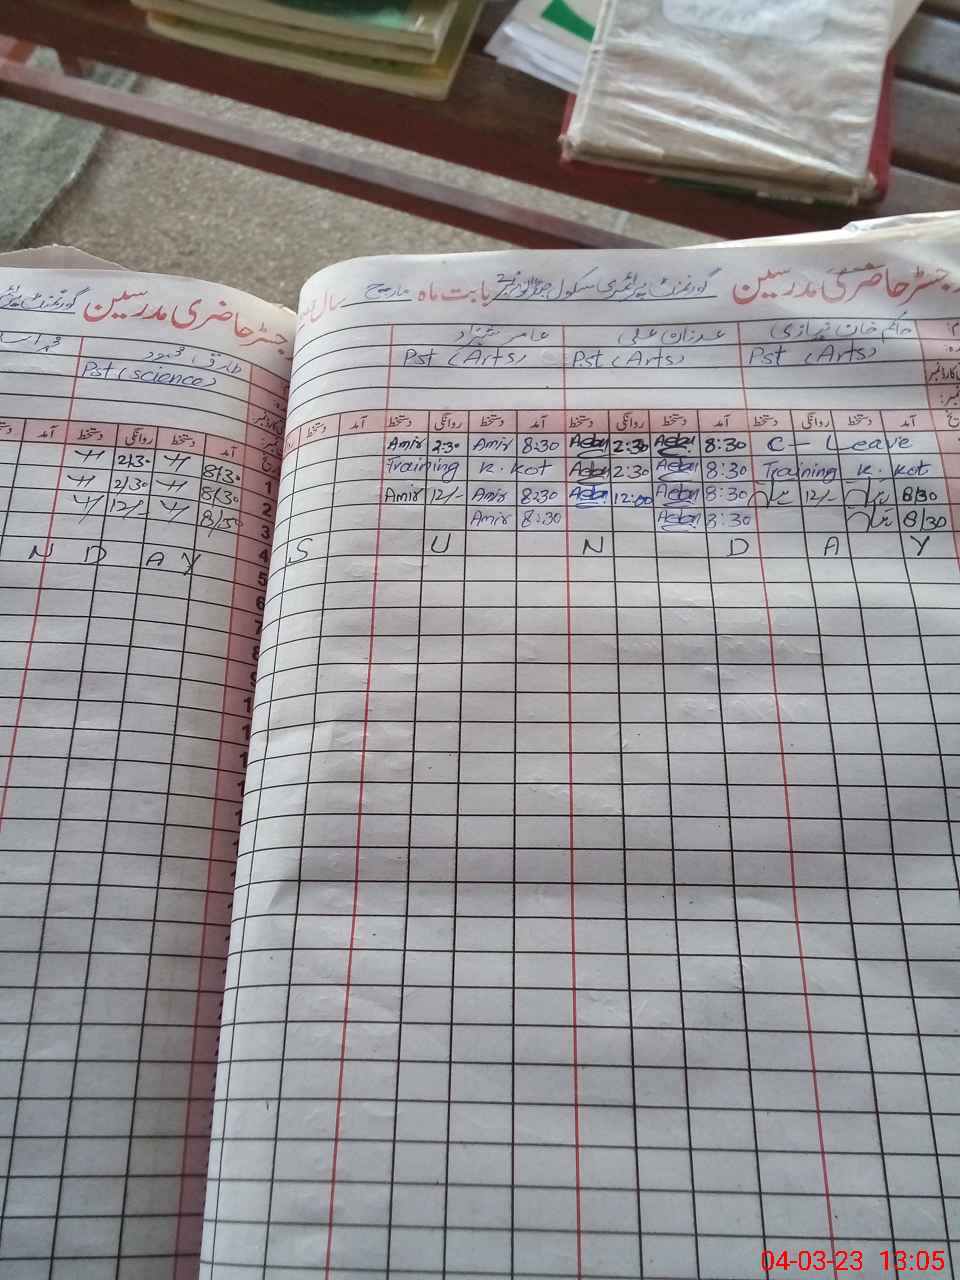 رجسٹر حاضری مدرسین گورنمنٹ پرائمری سکول بابت ماہ مارچ سال
رجسٹر حاضری مدرسین گورنمنٹ
حاکم خان نیازی عدنان علی عامر شہزاد
طارق محمود
Pst (Arts) Pst (Arts) Pst (Arts)
Pst (science)
آمد دستخط روانگی دستخط آمد دستخط روانگی دستخط آمد دستخط روانگی دستخط آمد دستخط
آمد دستخط روانگی دستخط آمد
Amir 2:30 Amir 8:30 Adnan 2:30 Adnan 8:30 C - Leave
Training K. Kot Adnan 2:30 Adnan 8:30 Training K. Kot
Amir 12/- Amir 8:30 Adnan 12:00 Adnan 8:30 12/- 8/30
Amir 8:30 Adnan 8:30 8/30
S U N D A Y
2/30 8/30 1
2/30 8/30 2
12/- 3
N D A Y 4
5
6
7
8
9
04-03-23 13:05